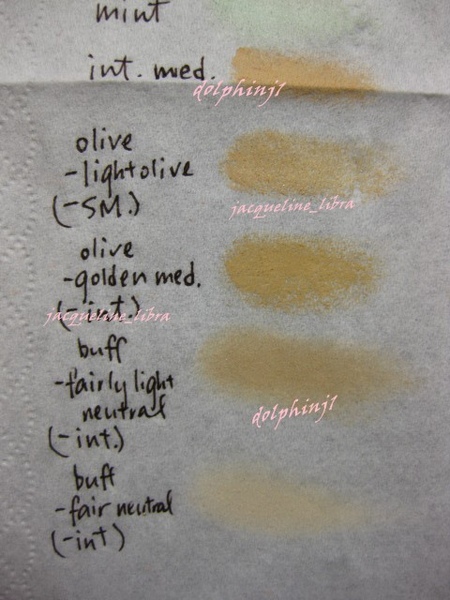 mint
int. med.
dolphinj1
olive
-lightolive
(-SM.)
jacqueline_libra
olive
-golden med.
(-int.)
jacqueline_libra
buff
-fairly light
neutral
dolphinj1
(-int.)
buff
-fair neutral
(-int)